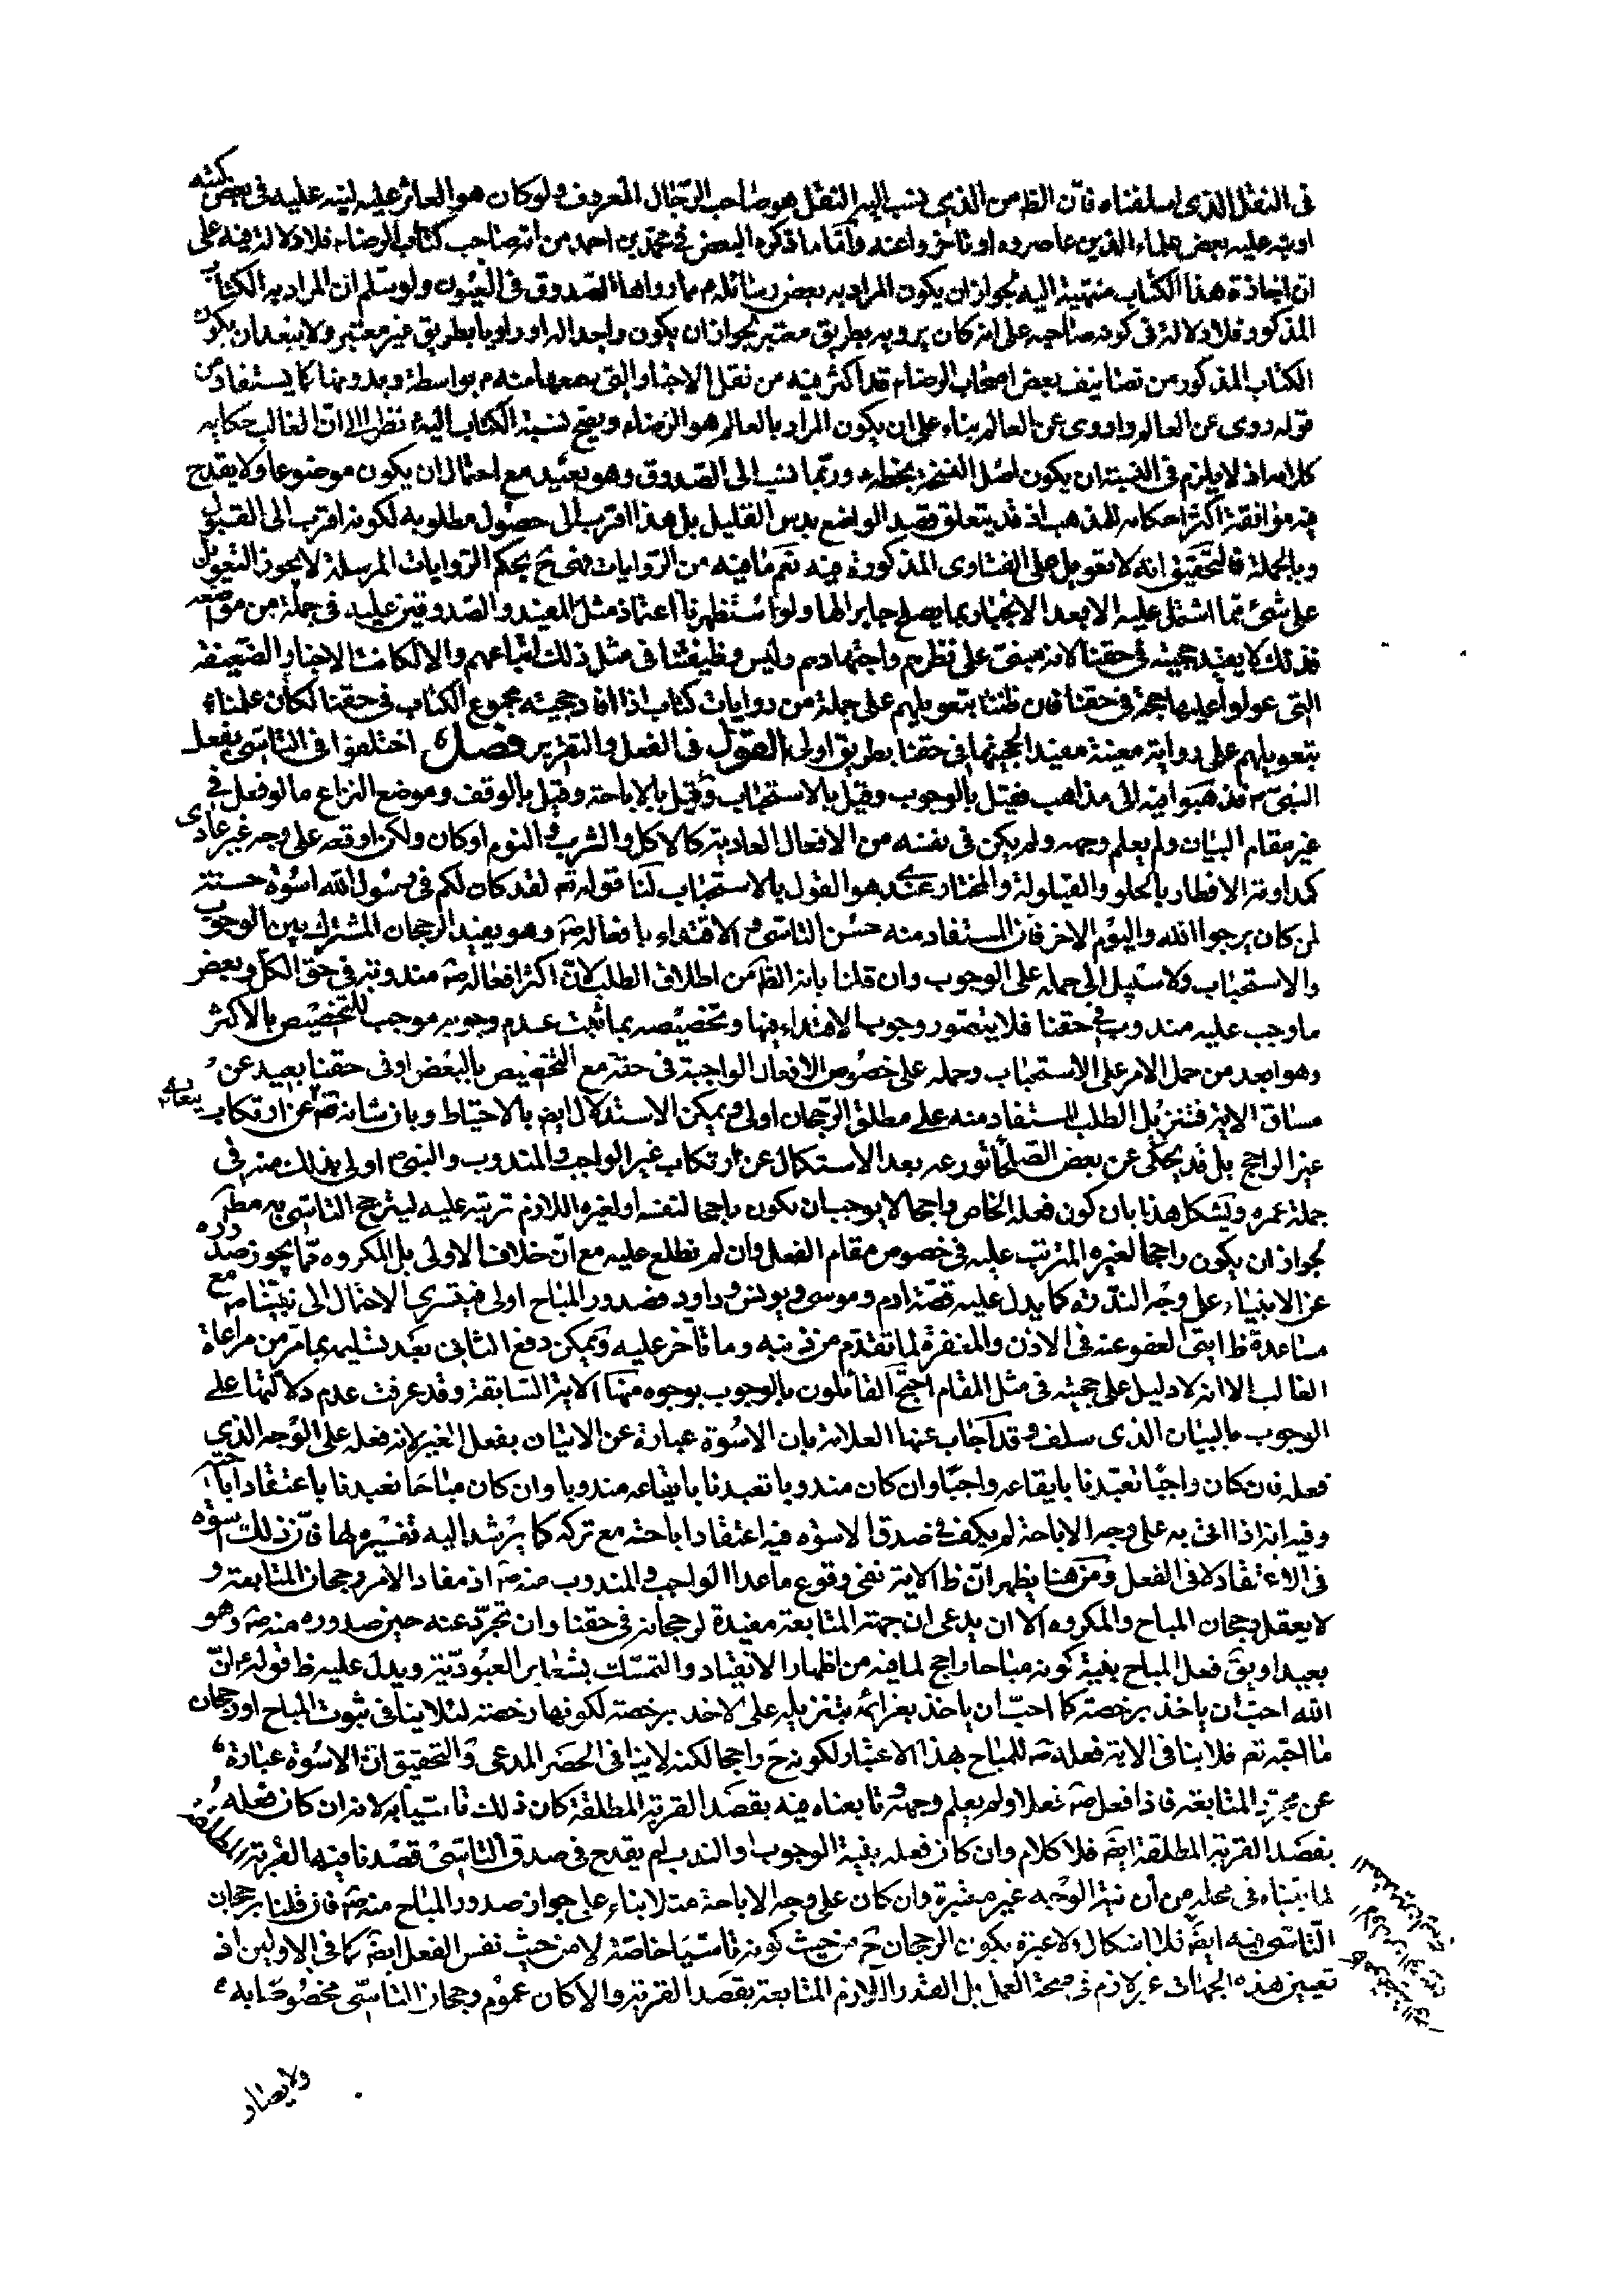 في النقل الذي اسلفناه فان الظ من الذي نسب اليه النقل هو صاحب الرجال المعروف ولو كان هو العاثر عليه لنبه عليه في بعض كتبه
او نبه عليه بعض علماء الذين عاصروه او تاخروا عنه واما ما ذكره البعض في محمد بن احمد من انه صاحب كتاب الرضاء فلا دلالة فيه على
ان اجازة هذا الكتاب منتهية اليه لجواز ان يكون المراد به بعض رسائله م مما رواها الصدوق في العيون ولو سلم ان المراد به الكتاب
المذكور فلا دلالة في كونه صاحبه على انه كان يرويه بطريق معتبر لجواز ان يكون واجدا له او راويا بطريق غير معتبر ولا يبعد ان يكون
الكتاب المذكور من تصانيف بعض اصحاب الرضاء قد اكثر فيه من نقل الاخبار التي سمعها منه م بواسطة وبدونها كما يستفاد من
قوله روى عن العالم واروى عن العالم بناء على ان يكون المراد بالعالم هو الرضاء ويصح نسبة الكتاب اليه نظرا الى ان الغالب حكاية
كلامه اذ لا يلزم في النسبة ان يكون اصل النسخة بخطه وربما نسب الى الصدوق وهو بعيد مع احتمال ان يكون موضوعا ولا يقدح
فيه موافقة اكثر احكامه للمذهب اذ قد يتعلق قصد الواضع بدس القليل بل هذا اقرب الى حصول مطلوبه لكونه اقرب الى القبول
وبالجملة فالتحقيق انه لا تعويل على الفتاوى المذكورة فيه نعم ما فيه من الروايات فهي ح بحكم الروايات المرسلة لا يجوز التعويل
على شئ مما اشتمل عليه الا بعد الانجبار بما يصلح جابرا لها ولو استظهرنا اعتماد مثل المفيد والصدوقين عليه في جملة من مواضعه
فذلك لا يفيد حجيته في حقنا لانه مبني على نظرهم واجتهادهم وليس وظيفتنا في مثل ذلك اتباعهم والا لكانت الاخبار الضعيفة
التي عولوا عليها حجة في حقنا فان ظننا بتعويلهم على جملة من روايات كتاب اذا افاد حجية مجموع الكتاب في حقنا لكان علمنا
بتعويلهم على رواية معينة مفيدا لحجيتها في حقنا بطريق اولى القول في الفعل والتقرير فصل اختلفوا في التاسي بفعل
النبي م فذهبوا فيه الى مذاهب فقيل بالوجوب وقيل بالاستحباب وقيل بالاباحة وقيل بالوقف وموضع النزاع ما لو فعل في
غير مقام البيان ولم يعلم وجهه ولم يكن في نفسه من الافعال العادية كالاكل والشرب والنوم او كان ولكن اوقعه على وجه غير عادي
كمداومة الافطار بالحلو والقيلولة والمختار عندي هو القول بالاستحباب لنا قوله تم لقد كان لكم في رسول الله اسوة حسنة
لمن كان يرجو الله واليوم الاخر فان المستفاد منه حسن التاسي والاقتداء بافعاله صم وهو يفيد الرجحان المشترك بين الوجوب
والاستحباب ولا سبيل الى حمله على الوجوب وان قلنا بانه الظ من اطلاق الطلب لان اكثر افعاله صم مندوبة في حق الكل وبعض
ما وجب عليه مندوب في حقنا فلا يتصور وجوب الاقتداء فيها وتخصيصه بما ثبت عدم وجوبه موجب للتخصيص بالاكثر
وهو ابعد من حمل الامر على الاستحباب وحمله على خصوص الافعال الواجبة في حقه مع التخصيص بالبعض او في حقنا بعيد عن
مساق الاية فتنزيل الطلب المستفاد منه على مطلق الرجحان اولى ويمكن الاستدلال ايض بالاحتياط وبان شانه صم عن ارتكاب
غير الراجح بل قد يحكى عن بعض الصلحاء تورعه بعد الاستكمال عن ارتكاب غير الواجب والمندوب والنبي م اولى بذلك منه في
جملة عمره ويشكل هذا بان كون فعله الخاص راجحا لا يوجب ان يكون راجحا لنفسه او لغيره اللازم ترتبه عليه ليترجح التاسي به مط
لجواز ان يكون راجحا لغيره المترتب عليه في خصوص مقام الفعل وان لم نطلع عليه مع ان خلاف الاولى بل المكروه مما يجوز صدوره
عن الانبياء على وجه الندرة كما يدل عليه قصة ادم وموسى ويونس وداود فصدور المباح اولى فيتسرى الاحتمال الى نبينا م مع
مساعدة ظ ايتي العفو عنه في الاذن والمغفرة لما تقدم من ذنبه وما تاخر عليه ويمكن دفع الثاني بعد تسليمه بما مر من مراعاة
الغالب الا انه لا دليل على حجيته في مثل المقام احتج القائلون بالوجوب بوجوه منها الاية السابقة وقد عرفت عدم دلالتها على
الوجوب بالبيان الذي سلف وقد اجاب عنها العلامة بان الاسوة عبارة عن الاتيان بفعل الغير لانه فعله على الوجه الذي
فعله فان كان واجبا تعبدنا بايقاعه واجبا وان كان مندوبا تعبدنا بايقاعه مندوبا وان كان مباحا تعبدنا باعتقاد اباحته
وفيه انه اذا اتى به على وجه الاباحة لم يكف في صدق الاسوة فيه اعتقاد اباحته مع تركه كما يرشد اليه تفسيره لها فان ذلك اسوة
في الاعتقاد لا في الفعل ومن هنا يظهر ان ظ الاية نفي وقوع ما عدا الواجب والمندوب منه صم اذ مفاد الامر رجحان المتابعة و
لا يعقل رجحان المباح والمكروه الا ان يدعى ان جهة المتابعة مفيدة لرجحانه في حقنا وان تجرد عنه حين صدوره منه صم وهو
بعيد او يق فعل المباح بنية كونه مباحا راجح لما فيه من اظهار الانقياد والتمسك بشعاير العبودية ويدل عليه ظ قوله م ان
الله احب ان ياخذ برخصه كما احب ان ياخذ بعزائمه بتنزيله على الاخذ برخصه لكونها رخصة لئلا ينافي ثبوت المباح او رجحان
ما احبه تم فلا ينافي الاية فعله صم للمباح بهذا الاعتبار لكونه ح راجحا لكنه لا ينافي الحصر المدعى والتحقيق ان الاسوة عبارة
عن مجرد المتابعة فاذا فعل صم فعلا ولم يعلم وجهه وتابعناه فيه بقصد القربة المطلقة كان ذلك تاسيا به لانه ان كان فعله
بقصد القربة المطلقة ايض فلا كلام وان كان فعله بنية الوجوب او الندب لم يقدح في صدق التاسي قصدنا فيه القربة المطلقة
لما بيناه في محله من ان نية الوجه غير معتبرة وان كان على وجه الاباحة متلا بناء على جواز صدور المباح منه صم فان قلنا برجحان
التاسي فيه ايض فلا اشكال ولا عبرة بكون الرجحان ح من حيث كونه تاسيا خاصة لا من حيث نفس الفعل ايض كما في الاولين اذ
تعيين هذه الجهات غير لازم في صحة العمل بل القدر اللازم المتابعة بقصد القربة والا كان عموم رجحان التاسي مخصوصا به
ولا يصار